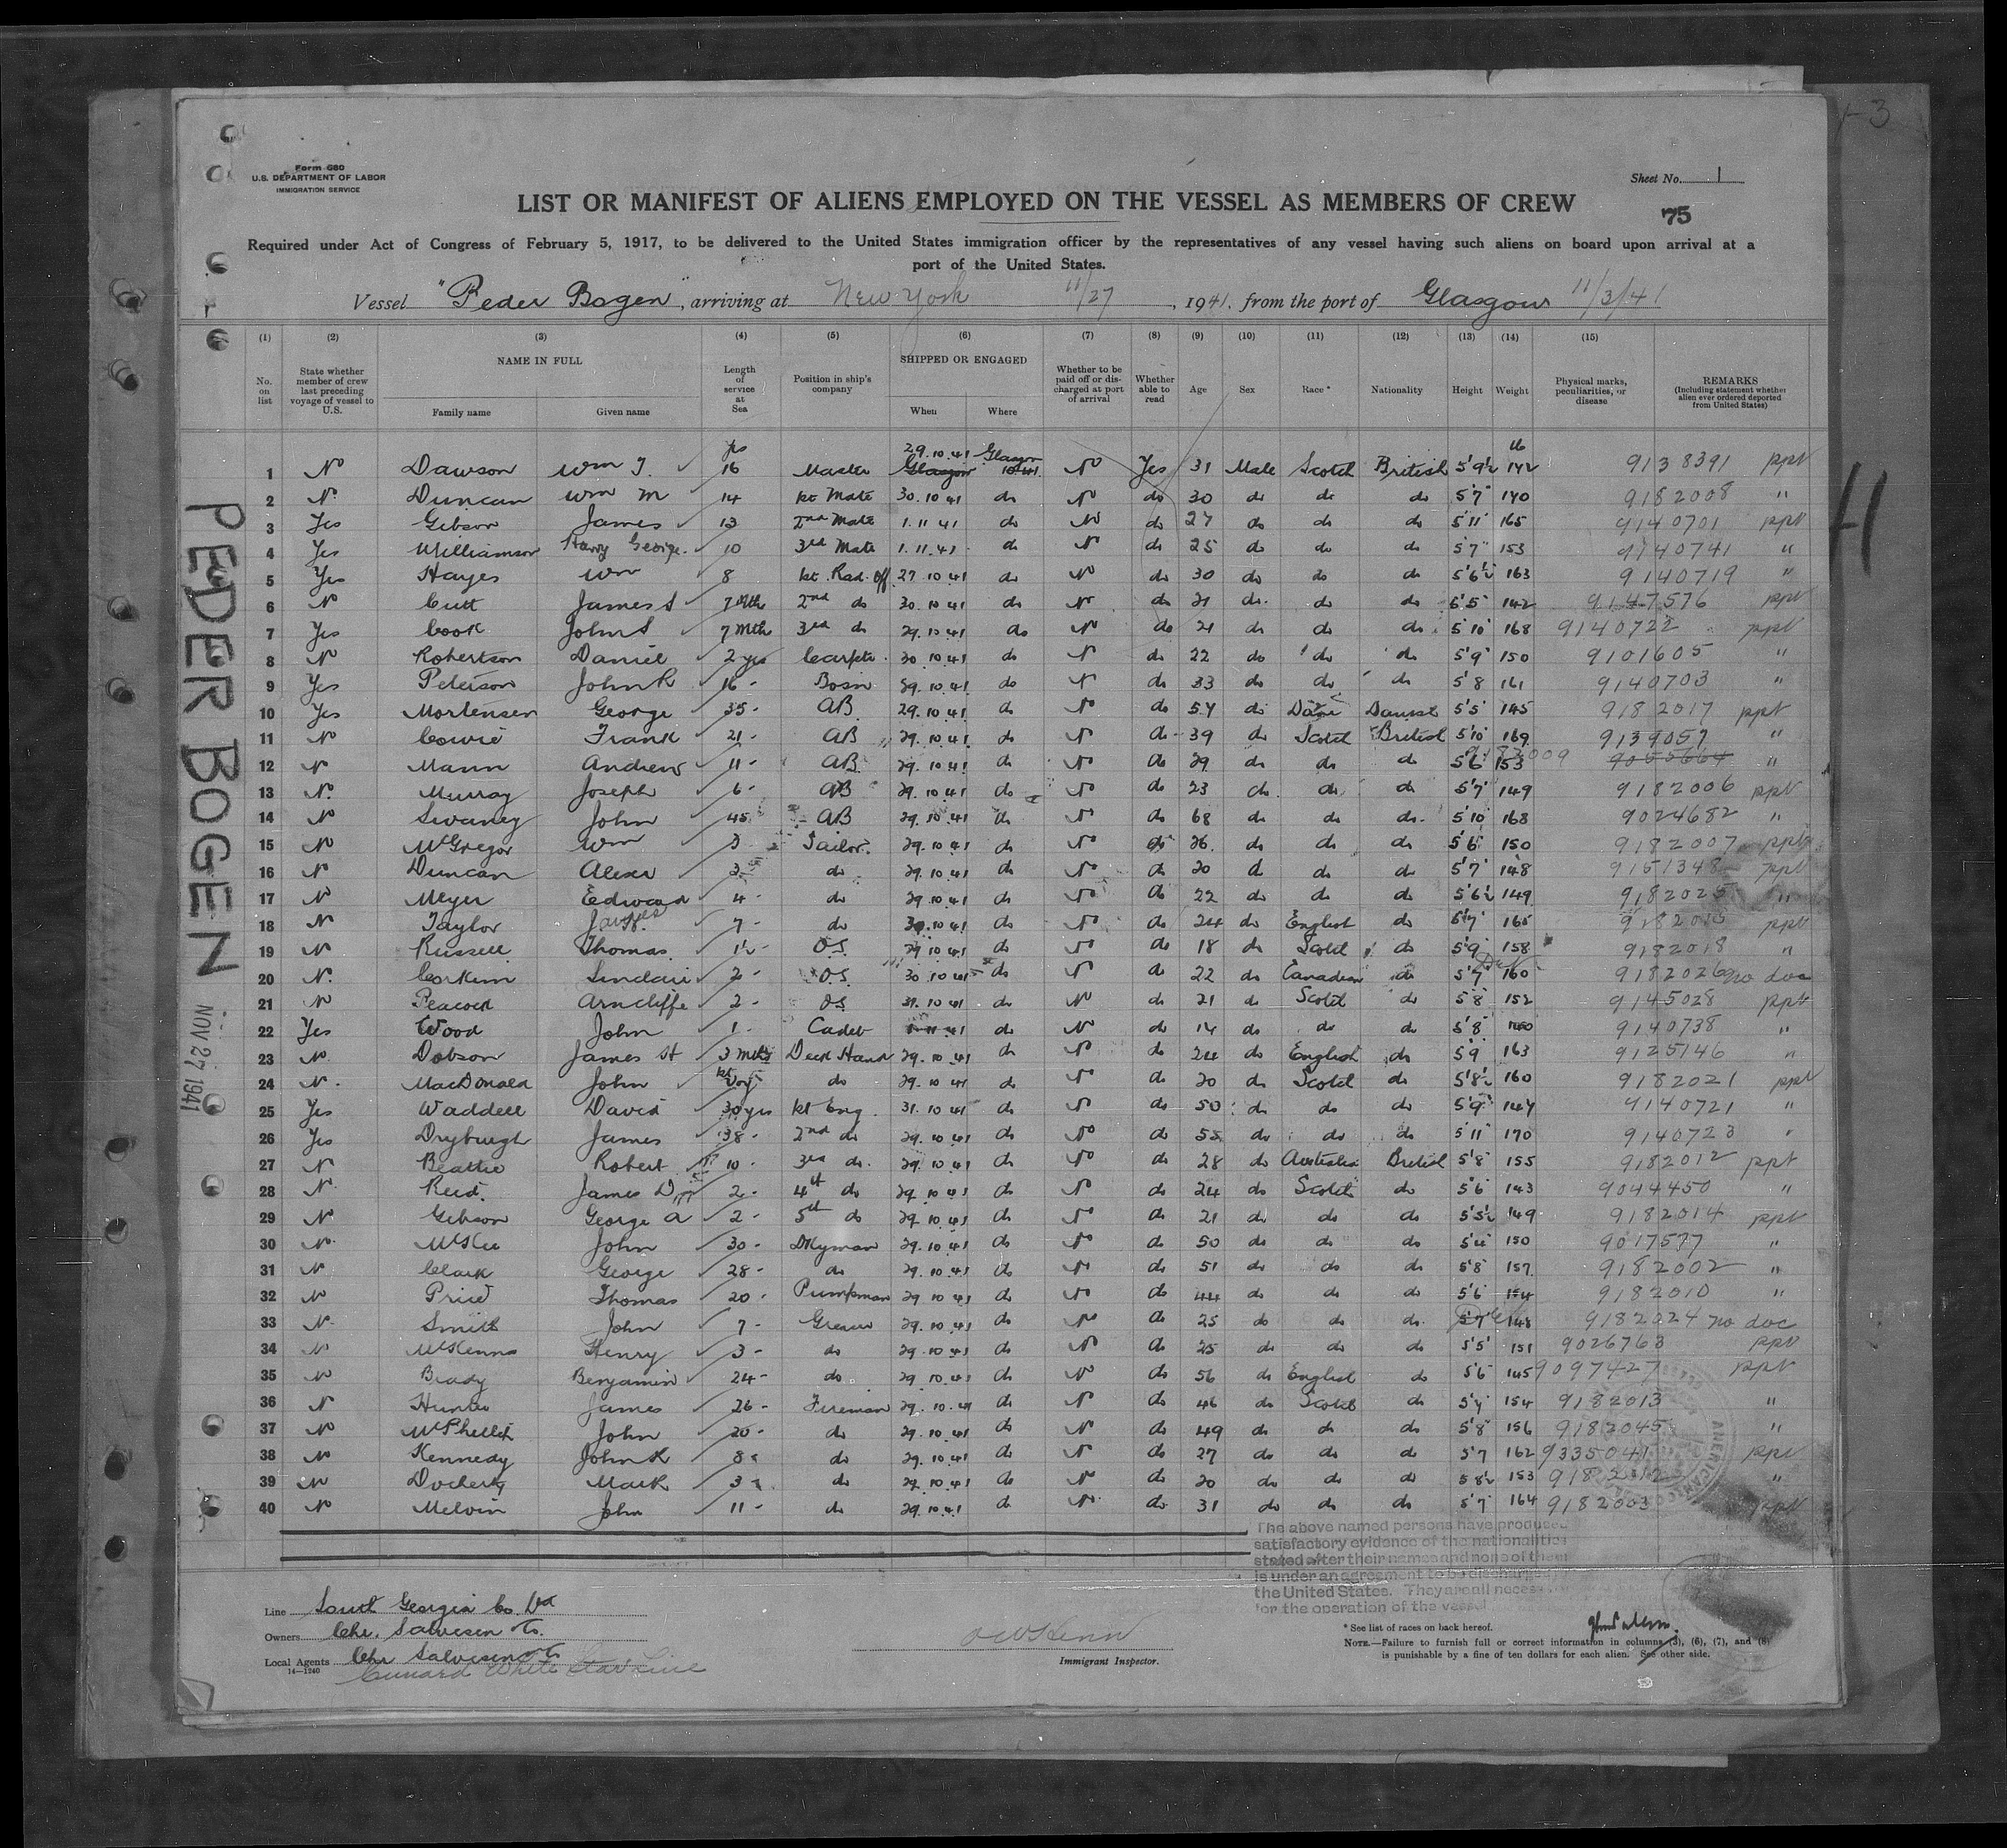 Form 680
U.S. DEPARTMENT OF LABOR
IMMIGRATION SERVICE
Sheet No. 1
LIST OR MANIFEST OF ALIENS EMPLOYED ON THE VESSEL AS MEMBERS OF CREW
75
Required under Act of Congress of February 5, 1917, to be delivered to the United States immigration officer by the representatives of any vessel having such aliens on board upon arrival at a
port of the United States.
Vessel "Peder Bogen", arriving at New York 11/27, 1941, from the port of Glasgow 11/3/41
(1) (2) (3) (4) (5) (6) (7) (8) (9) (10) (11) (12) (13) (14) (15)
No. on list
State whether member of crew last preceding voyage of vessel to U.S.
NAME IN FULL
Family name Given name
Length of service at Sea
Position in ship's company
SHIPPED OR ENGAGED
When Where
Whether to be paid off or discharged at port of arrival
Whether able to read
Age
Sex
Race *
Nationality
Height
Weight
Physical marks, peculiarities, or disease
REMARKS
(Including statement whether alien ever ordered deported from United States)
1 No Dawson Wm 16 Master 29.10.41 Glasgow No Yes 31 Male Scotch British 5'9½ 142 9138391 ppt
2 No Duncan Wm M 14 1st Mate 30.10.41 do No do 30 do do do 5'7" 140 9182008 "
3 Yes Gibson James 13 2nd Mate 1.11.41 do No do 27 do do do 5'11" 165 9140701 ppt
4 Yes Williamson Harry George 10 3rd Mate 1.11.41 do No do 25 do do do 5'7" 153 9140741 "
5 Yes Hayes Wm 8 1st Rad. Off. 27.10.41 do No do 30 do do do 5'6½ 163 9140719 "
6 No Cutt James S 7 Mth 2nd do 30.10.41 do No do 21 do do do 142 9147576 ppt
7 Yes Cook John S 7 Mth 3rd do 29.10.41 do No do 21 do do do 5'10" 168 9140722 ppt
8 No Robertson Daniel 2 yrs Carptr. 30.10.41 do No do 22 do do do 5'9" 150 9101605 "
9 Yes Peterson John R 16 - Bosn 29.10.41 do No do 33 do do do 5'8 161 9140703 "
10 Yes Mortensen George 35 - AB 29.10.41 do No do 54 do Dane Danish 5'5" 145 9182017 ppt
11 No Cowie Frank 21 - AB 29.10.41 do No do 39 do Scotch British 5'10" 169 9139057 "
12 No Mann Andrew 11 - AB 29.10.41 do No do 29 do do do 5'6" 153 "
13 No Murray Joseph 6 - AB 29.10.41 do No do 23 do do do 5'7" 149 9182006 ppt
14 No Swaney John 45 - AB 29.10.41 do No do 68 do do do 5'10" 168 9024682 "
15 No McGregor Wm 3 Sailor 29.10.41 do No do 26 do do do 5'6 150 9182007 ppt
16 No Duncan Alexr 3 do 29.10.41 do No do 20 do do do 5'7" 148 9151348 ppt
17 No Meyer Edward 4 - do 29.10.41 do No do 22 do do do 5'6½ 149 9182025 "
18 No Taylor James 7 - do 30.10.41 do No do 24 do English do 5'7" 165 ppt
19 No Russell Thomas 1½ - O.S. 29.10.41 do No do 18 do Scotch do 5'9 158 9182018 "
20 No Corkum Sinclair 2 - O.S. 30.10.41 do No do 22 do Canadian do 5'7" 160 9182026 no doc
21 No Peacock Arncliffe 2 - OS 31.10.41 do No do 21 do Scotch do 5'8 152 9145028 ppt
22 Yes Wood John 1 - Cadet 1.11.41 do No do do do do 5'8" 9140738 "
23 No Dobson James H 3 mths Deck Hand 29.10.41 do No do 24 do English do 5'9 163 9125146 "
24 No MacDonald John 1st Voy do 29.10.41 do No do 20 do Scotch do 5'8½ 160 9182021 ppt
25 Yes Waddell David 30 yrs 1st Eng. 31.10.41 do No do 50 do do do 5'9" 147 9140721 "
26 Yes Dryburgh James 38 - 2nd do 29.10.41 do No do 55 do do do 5'11" 170 9140723 "
27 No Beattie Robert 10 - 3rd do 29.10.41 do No do 28 do Australia British 5'8 155 9182012 ppt
28 No Reid James D 2 - 4th do 29.10.41 do No do 24 do Scotch do 5'6 143 9044450 "
29 No Gibson George A 2 - 5th do 29.10.41 do No do 21 do do do 5'5½ 149 9182014 ppt
30 No McKee John 30 - DKyman 29.10.41 do No do 50 do do do 150 9017577 "
31 No Clark George 28 - do 29.10.41 do No do 51 do do do 5'8" 157 9182002 "
32 No Price Thomas 20 - Pumpman 29.10.41 do No do 44 do do do 5'6" 154 9182010 "
33 No Smith John 7 - Greaser 29.10.41 do No do 25 do do do 5'7" 148 9182024 no doc
34 No McKenna Henry 3 - do 29.10.41 do No do 25 do do do 5'5" 151 9026763 ppt
35 No Brady Benjamin 24 - do 29.10.41 do No do 56 do English do 5'6 145 9097427 ppt
36 No Hunter James 26 - Fireman 29.10.41 do No do 46 do Scotch do 154 9182013 "
37 No McPhillips John 20 - do 29.10.41 do No do 49 do do do 5'8" 156 9182045 "
38 No Kennedy John R 8 - do 29.10.41 do No do 27 do do do 5'7 162 9335041 ppt
39 No Docherty Mark 3 - do 29.10.41 do No do 20 do do do 5 8½ 153 "
40 No Melvin John 11 - do 29.10.41 do No do 31 do do do 5'7" 164 9182003 ppt
PEDER BOGEN NOV 27 1941
The above named persons have produced
satisfactory evidence of the nationalities
stated after their names and none of them
is under an agreement to be discharged
the United States. They are all neces
for the operation of the vessel
Line South Georgia Co. Ltd
Owners Chr. Salvesen & Co.
Local Agents Chr Salvesen & Co
Cunard White Star Line
14—1240
Immigrant Inspector.
* See list of races on back hereof.
NOTE.—Failure to furnish full or correct information in columns (3), (6), (7), and (8)
is punishable by a fine of ten dollars for each alien. See other side.